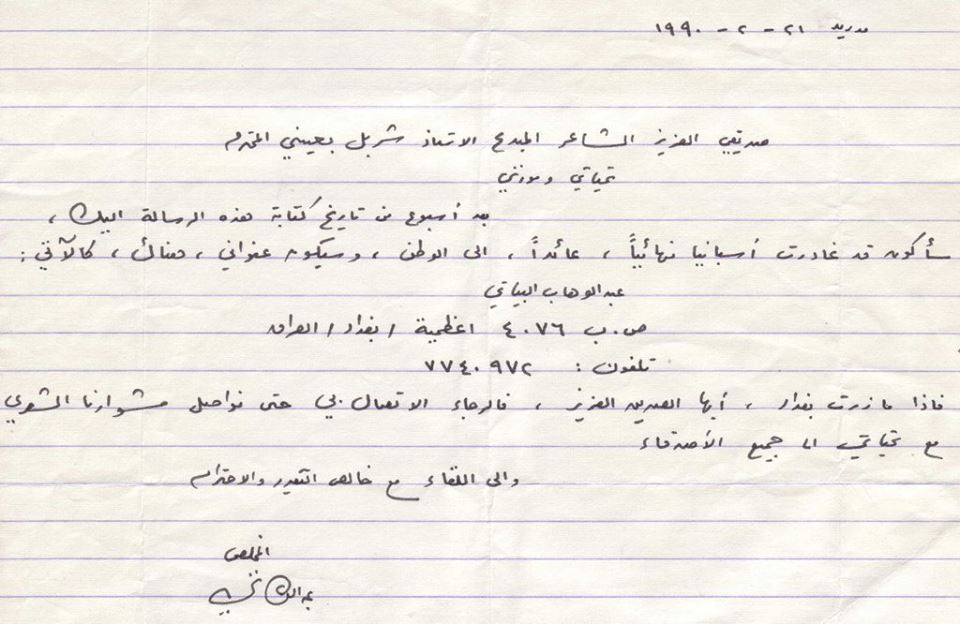 مدريد ٢١ - ٢ - ١٩٩٠
صديقي العزيز الشاعر المبدع الاستاذ شربل بعيني المحترم
تحياتي ومودتي
بعد أسبوع من تاريخ كتابة هذه الرسالة اليك ،
سأكون قد غادرت أسبانيا نهائياً ، عائداً ، الى الوطن ، وسيكون عنواني ، هناك ، كالآتي :
عبدالوهاب البياتي
ص . ب ٤٠٧٦ اعظمية / بغداد / العراق
تلفون : ٧٧٤٠٩٧٢
فاذا ما زرت بغداد ، أيها الصديق العزيز ، فالرجاء الاتصال بي حتى نواصل مشوارنا الشعري
مع تحياتي الى جميع الأصدقاء
والى اللقاء مع خالص التقدير والاحترام
المخلص